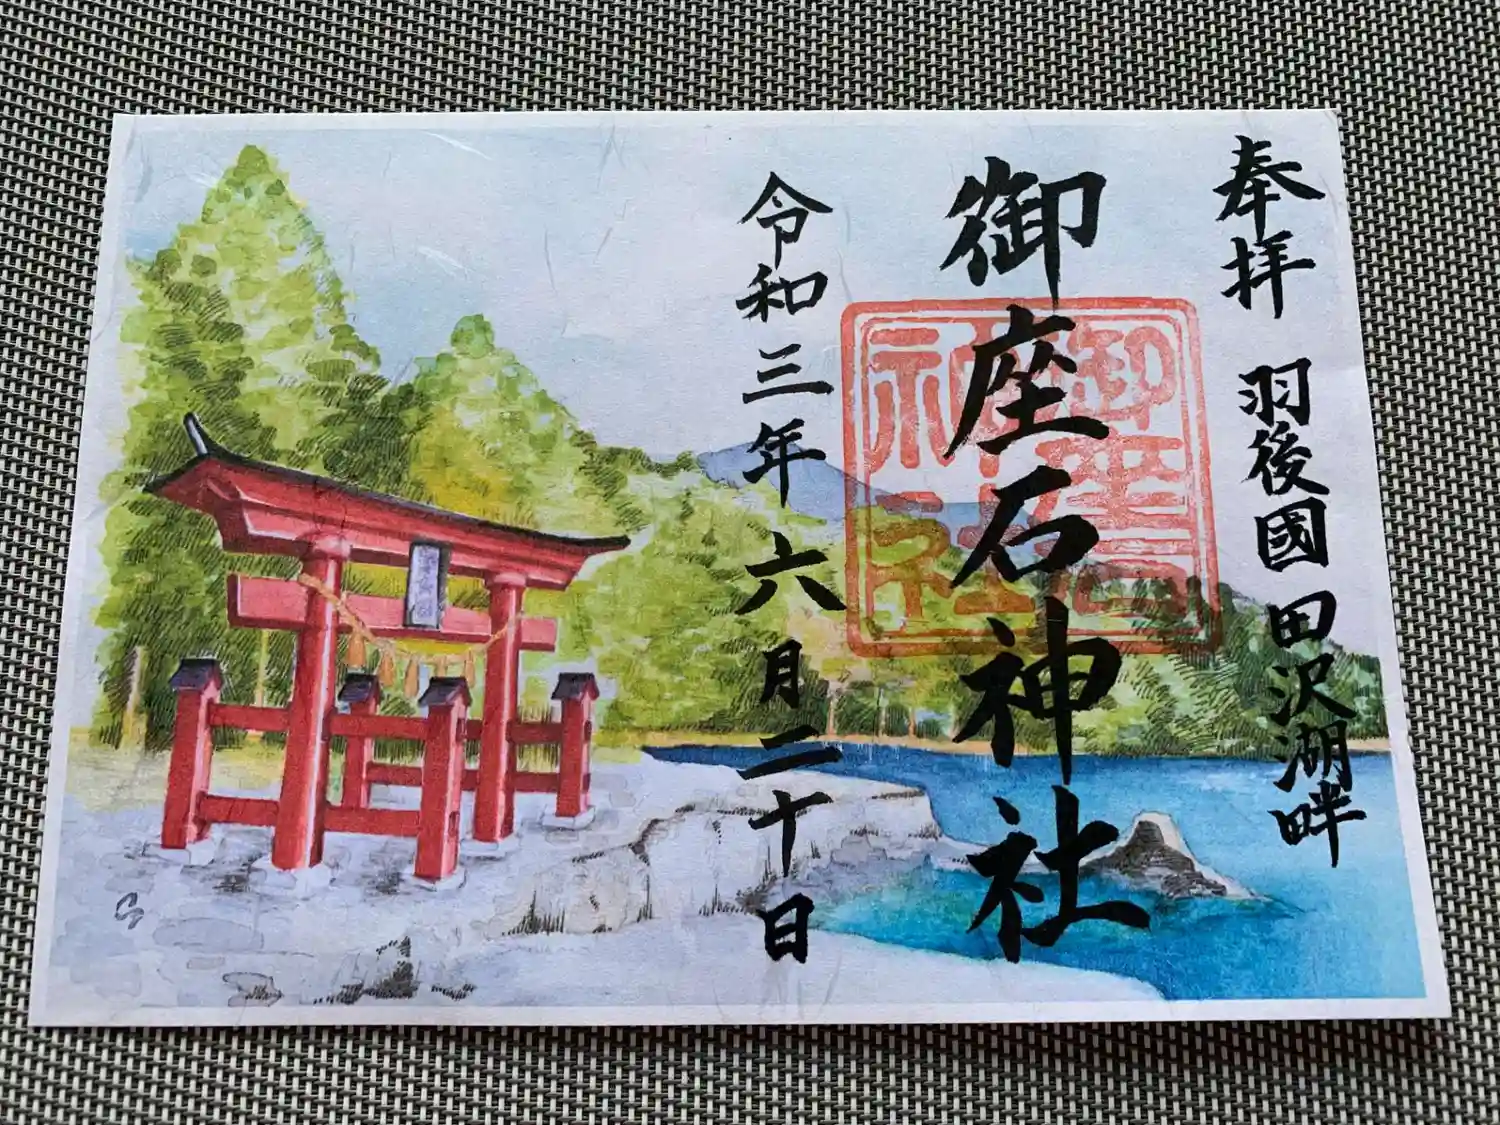 奉拝 羽後國田沢湖畔
御座石神社
令和三年六月二十日
御座石
神社